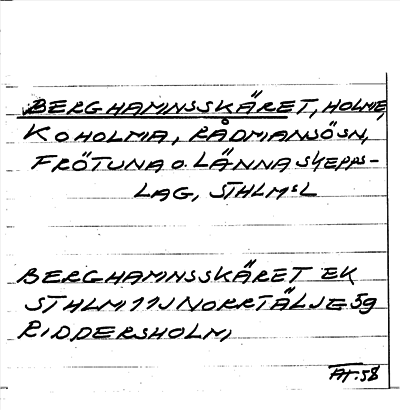 BERGHAMNSSKÄRET, HOLME,
KOHOLMA, RÅDMANSÖSN,
FRÖTUNA O. LÄNNA SKEPPS-
LAG, STHLMSL
BERGHAMNSSKÄRET EK
STHLM 11J NORRTÄLJE 59
RIDDERSHOLM,
AT.58